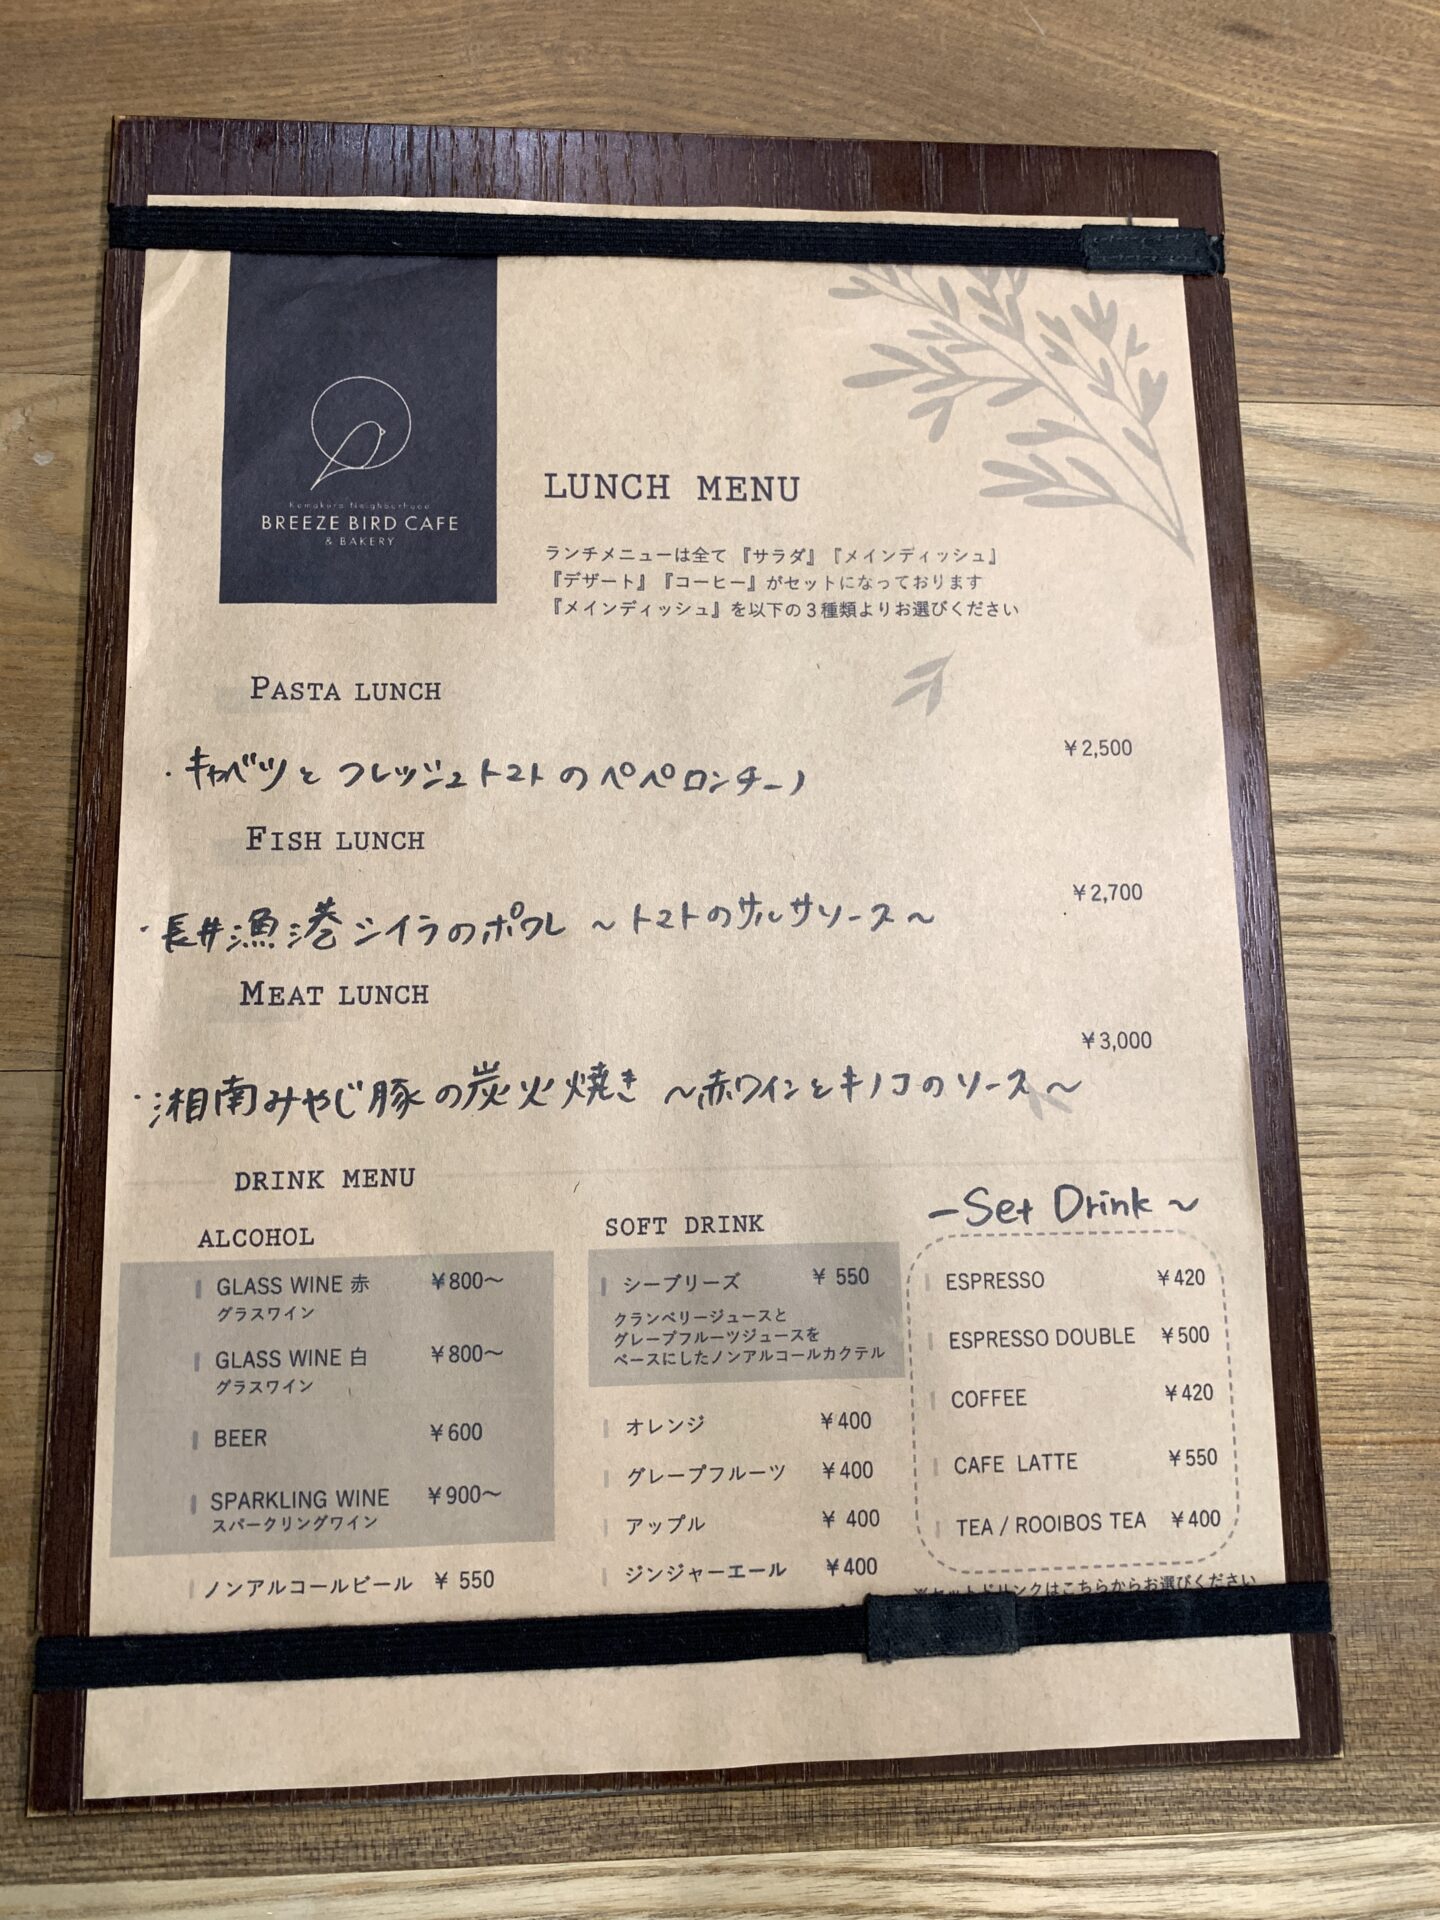 Kamakura Neighborhood
BREEZE BIRD CAFE
& BAKERY
LUNCH MENU
ランチメニューは全て『サラダ』『メインディッシュ』
『デザート』『コーヒー』がセットになっております
『メインディッシュ』を以下の3種類よりお選びください
PASTA LUNCH
¥2,500
・キャベツとフレッシュトマトのペペロンチーノ
FISH LUNCH
¥2,700
・長井漁港シイラのポワレ ~トマトのサルサソース~
MEAT LUNCH
¥3,000
・湘南みやじ豚の炭火焼き ~赤ワインとキノコのソース~
DRINK MENU
ALCOHOL
GLASS WINE 赤 ¥800~
グラスワイン
GLASS WINE 白 ¥800~
グラスワイン
BEER ¥600
SPARKLING WINE ¥900~
スパークリングワイン
ノンアルコールビール ¥ 550
SOFT DRINK
シーブリーズ ¥ 550
クランベリージュースと
グレープフルーツジュースを
ベースにしたノンアルコールカクテル
オレンジ ¥400
グレープフルーツ ¥400
アップル ¥ 400
ジンジャーエール ¥400
-Set Drink ~
ESPRESSO ¥420
ESPRESSO DOUBLE ¥500
COFFEE ¥420
CAFE LATTE ¥550
TEA / ROOIBOS TEA ¥400
※セットドリンクはこちらからお選びください